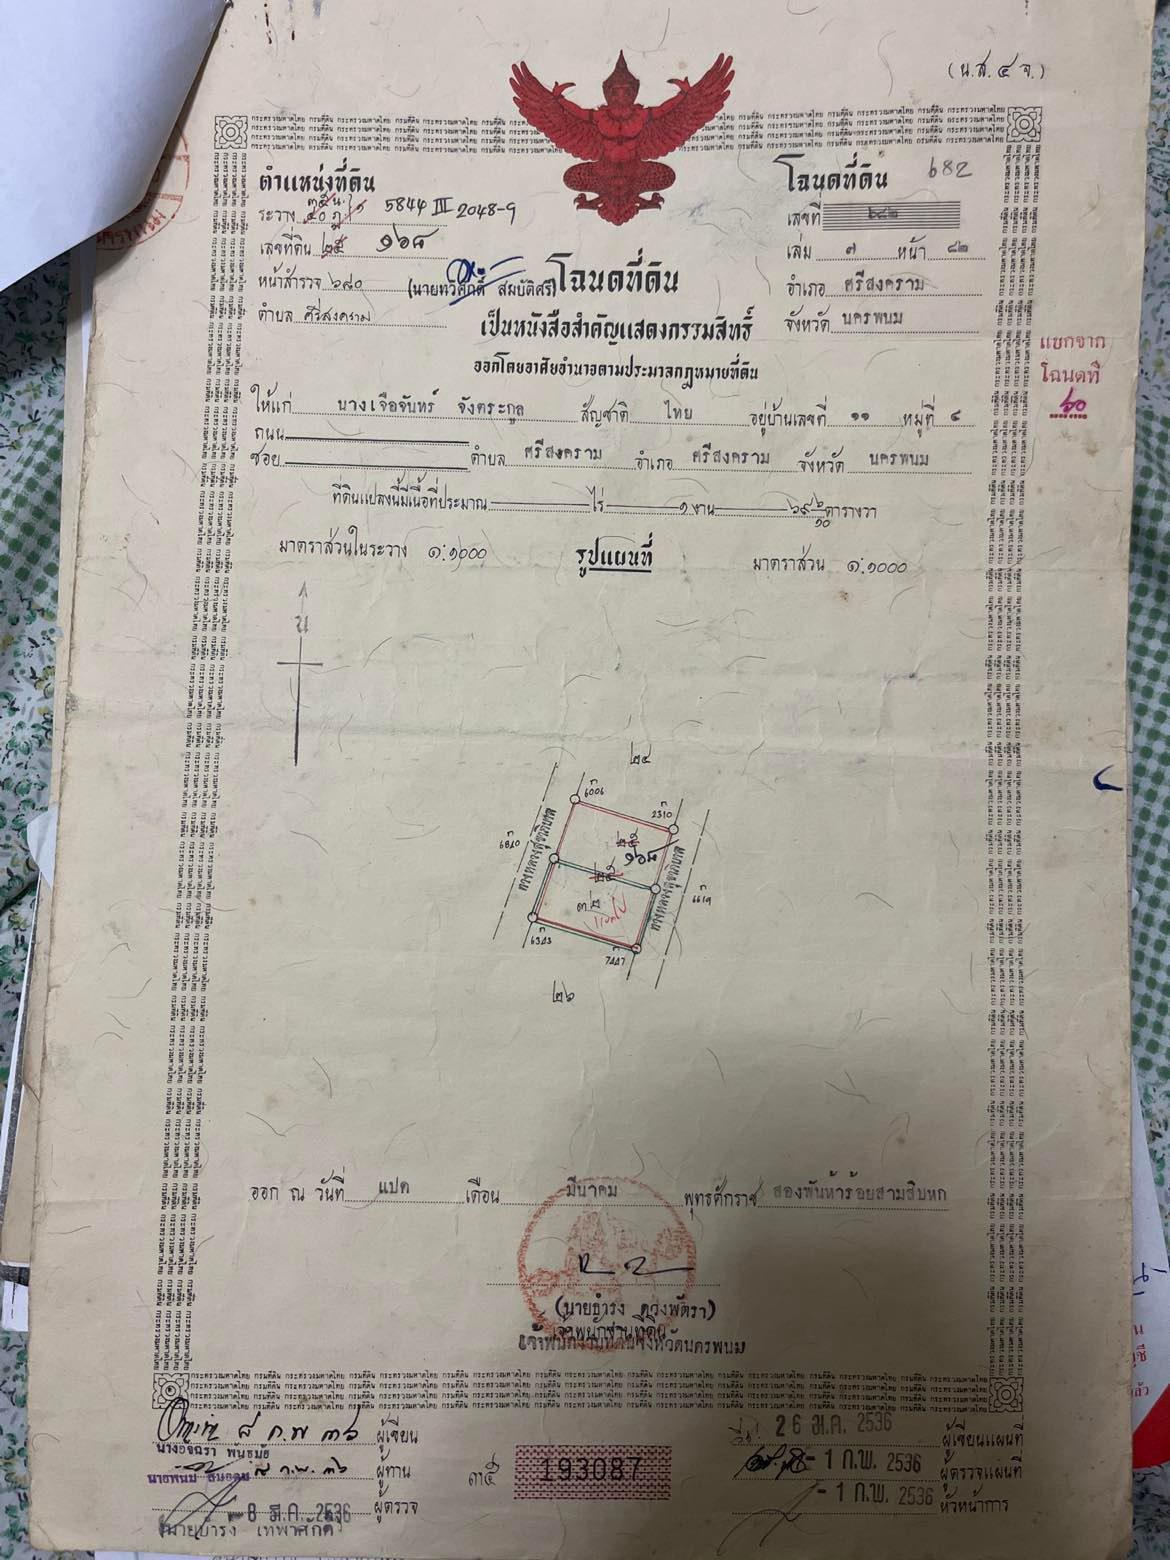 (น.ส. ๔ จ.)
ตำแหน่งที่ดิน
ระวาง 5844 III 2048-9
เลขที่ดิน ๒๕ ๑๖๘
หน้าสำรวจ ๖๘๐
(นายทวีศักดิ์ สมบัติศรี)
ตำบล ศรีสงคราม
โฉนดที่ดิน 682
เลขที่ ๖๘๒
เล่ม ๗ หน้า ๘๒
อำเภอ ศรีสงคราม
จังหวัด นครพนม
โฉนดที่ดิน
เป็นหนังสือสำคัญแสดงกรรมสิทธิ์
ออกโดยอาศัยอำนาจตามประมวลกฎหมายที่ดิน
แยกจาก
โฉนดที่
๖๐
ให้แก่ นางเจือจันทร์ จังตระกูล สัญชาติ ไทย อยู่บ้านเลขที่ ๑๑ หมู่ที่ ๔
ถนน
ซอย ตำบล ศรีสงคราม อำเภอ ศรีสงคราม จังหวัด นครพนม
ที่ดินแปลงนี้มีเนื้อที่ประมาณ ไร่ ๑ งาน ๖๙ ๖/๑๐ ตารางวา
มาตราส่วนในระวาง ๑:๑๐๐๐ รูปแผนที่ มาตราส่วน ๑:๑๐๐๐
น
๒๔
ทางหลวงสุขาภิบาล
๒๕
๑๖๘
๓๒
ทางหลวงสุขาภิบาล
๒๖
ออก ณ วันที่ แปด เดือน มีนาคม พุทธศักราช สองพันห้าร้อยสามสิบหก
(นายธำรง ดวงพัตรา)
เจ้าพนักงานที่ดิน
เจ้าพนักงานที่ดินจังหวัดนครพนม
๘ ก.พ ๓๖ ผู้เขียน
นางอัจฉรา พันธุ์มัย
๘ ก.พ. ๓๖ ผู้ทาน
- 8 มี.ค. 2536 ผู้ตรวจ
๓๕ 193087
26 ม.ค. 2536 ผู้เขียนแผนที่
- 1 ก.พ. 2536 ผู้ตรวจแผนที่
- 1 ก.พ. 2536 หัวหน้าการ